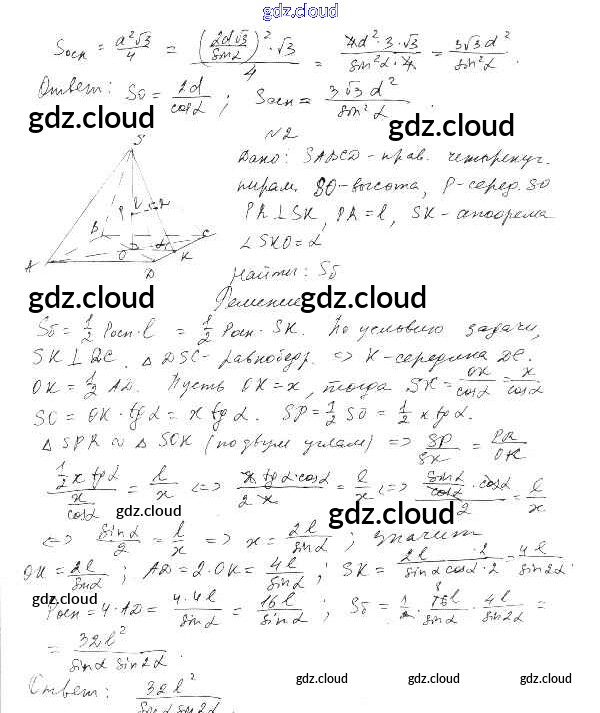 gdz.cloud
Sосн = a²√3/4 = (2d√3/sinα)²·√3/4 = 4d²·3·√3/sin²α·4 = 3√3d²/sin²α.
Ответ: Sб = 2d/cosα; Sосн = 3√3d²/sin²α.
gdz.cloud gdz.cloud
N2
Дано: SABCD - прав. четырехуг.
пирам. SO-высота, P-серед. SO
PR⊥SK, PR=l, SK-апофема
∠SKO=α
Найти: Sб
S
P
R
B
C
O
K
A
D
gdz.cloud gdz.cloud
Решение
Sб = 1/2 Pосн·l = 1/2 Pосн·SK. По условию задачи,
SK⊥DC. △DSC-равнобедр. => K-середина DC.
OK = 1/2 AD. Пусть OK=x, тогда SK = OK/cosα = x/cosα
SO = OK·tgα = x tgα. SP = 1/2 SO = 1/2 x tgα.
△SPR ∾ △SOK (по двум углам) => SP/SK = PR/OK
1/2 x tgα / x/cosα = l/x <=> x tgα·cosα/2x = l/x <=> sinα/cosα·cosα/2 = l/x
gdz.cloud gdz.cloud
<=> sinα/2 = l/x => x = 2l/sinα; значит
OK = 2l/sinα; AD = 2·OK = 4l/sinα; SK = 2l·2/sinα cosα·2 = 4l/sin2α.
gdz.cloud gdz.cloud
Pосн = 4·AD = 4·4l/sinα = 16l/sinα; Sб = 1/2·16l/sinα·4l/sin2α =
= 32l²/sinα sin2α.
gdz.cloud gdz.cloud
Ответ: 32l²/sinα sin2α